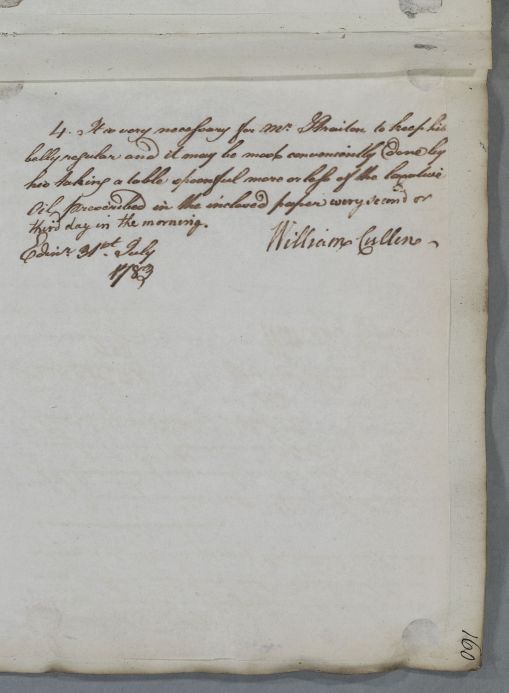 4. It is very necessary for Mr. Straiton to keep his
belly regular and it may be most conveniently done by
his taking a table spoonful more or less of the Laxative
Oil prescribed in the inclosed paper every second or
third day in the morning.
William Cullen
Edinr. 31st. July
1783
160